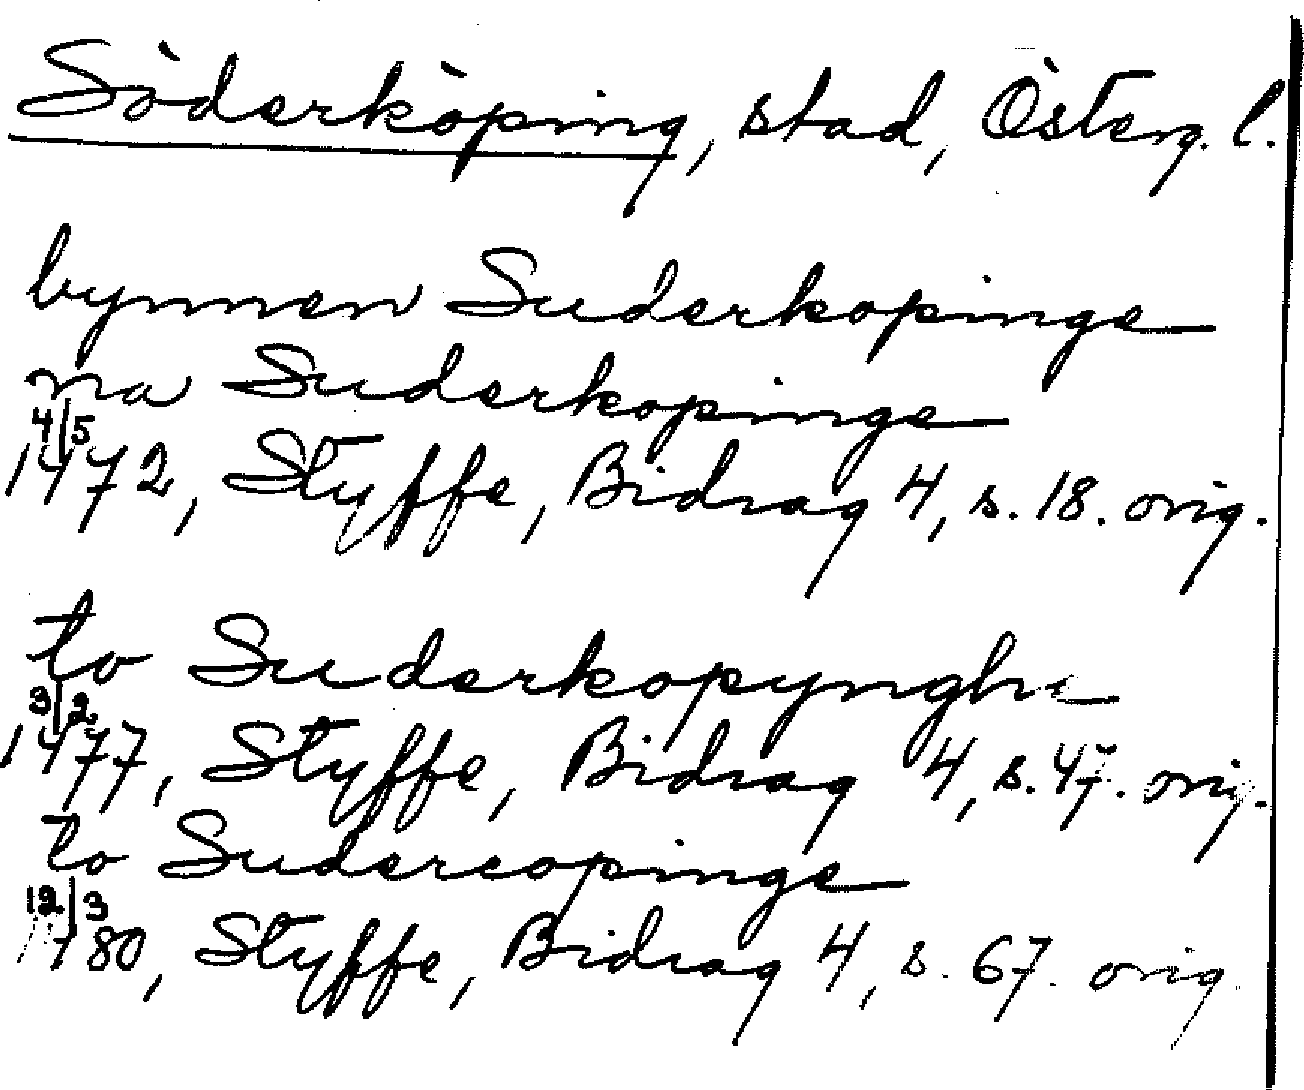 Söderköping, stad, Österg. l.
bynnen Suderkopinge
na Suderkopinge
4/5
1472, Styffe, Bidrag 4, s. 18. orig.
to Suderkopynghe
3/2
1477, Styffe, Bidrag 4, s. 47. orig.
to Sudercopinge
12/3
1480, Styffe, Bidrag 4, s. 67. orig.